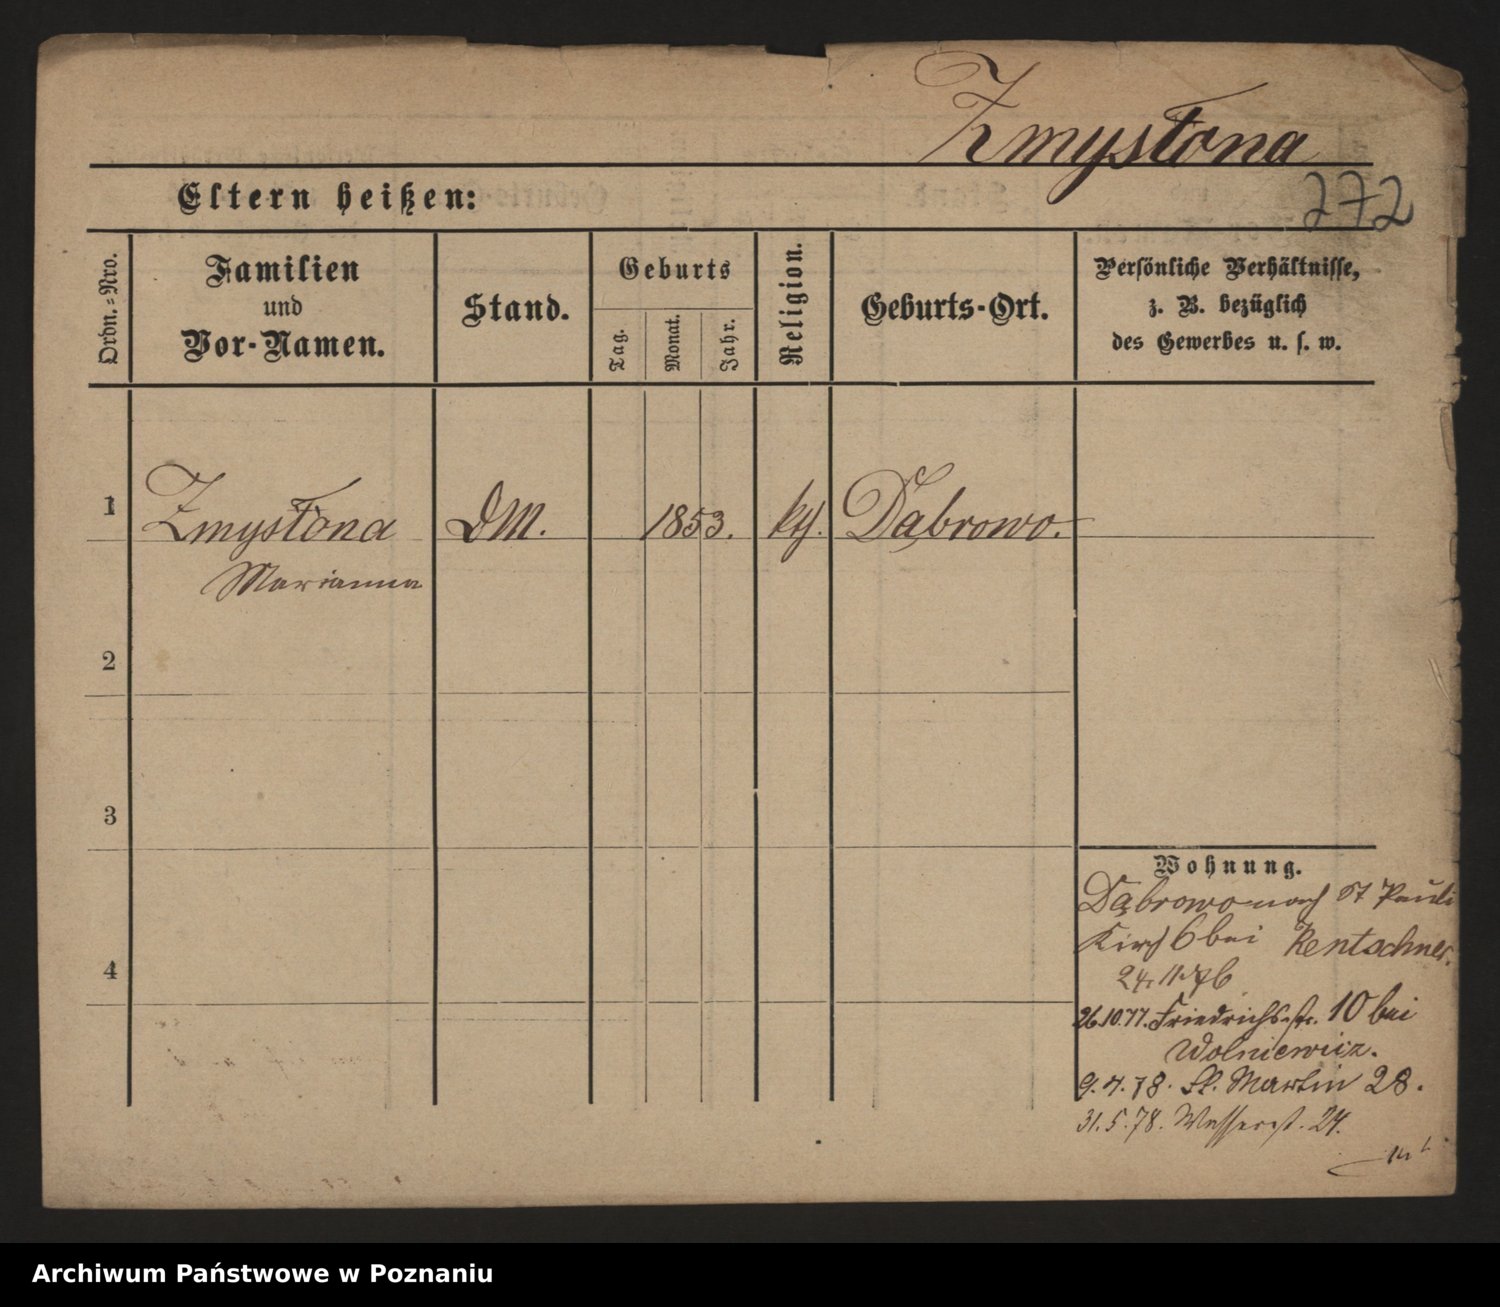 Zmysłona
272
Eltern heißen:
Ordn.-Nro.
Familien
und
Vor-Namen.
Stand.
Geburts
Tag.
Monat.
Jahr.
Religion.
Geburts-Ort.
Persönliche Verhältnisse,
z. B. bezüglich
des Gewerbes u. s. w.
1
Zmysłona
Marianna
DM.
1853.
kth.
Dąbrowo.
2
3
4
Wohnung.
Dąbrowo nach St Pauli
Kirch 6 bei Rentschner.
24. 11. 76
26.10.77. Friedrichsstr. 10 bei
Wolniewicz.
9.4.78. St. Martin 28.
31.5.78. Wasserst. 24.
Archiwum Państwowe w Poznaniu